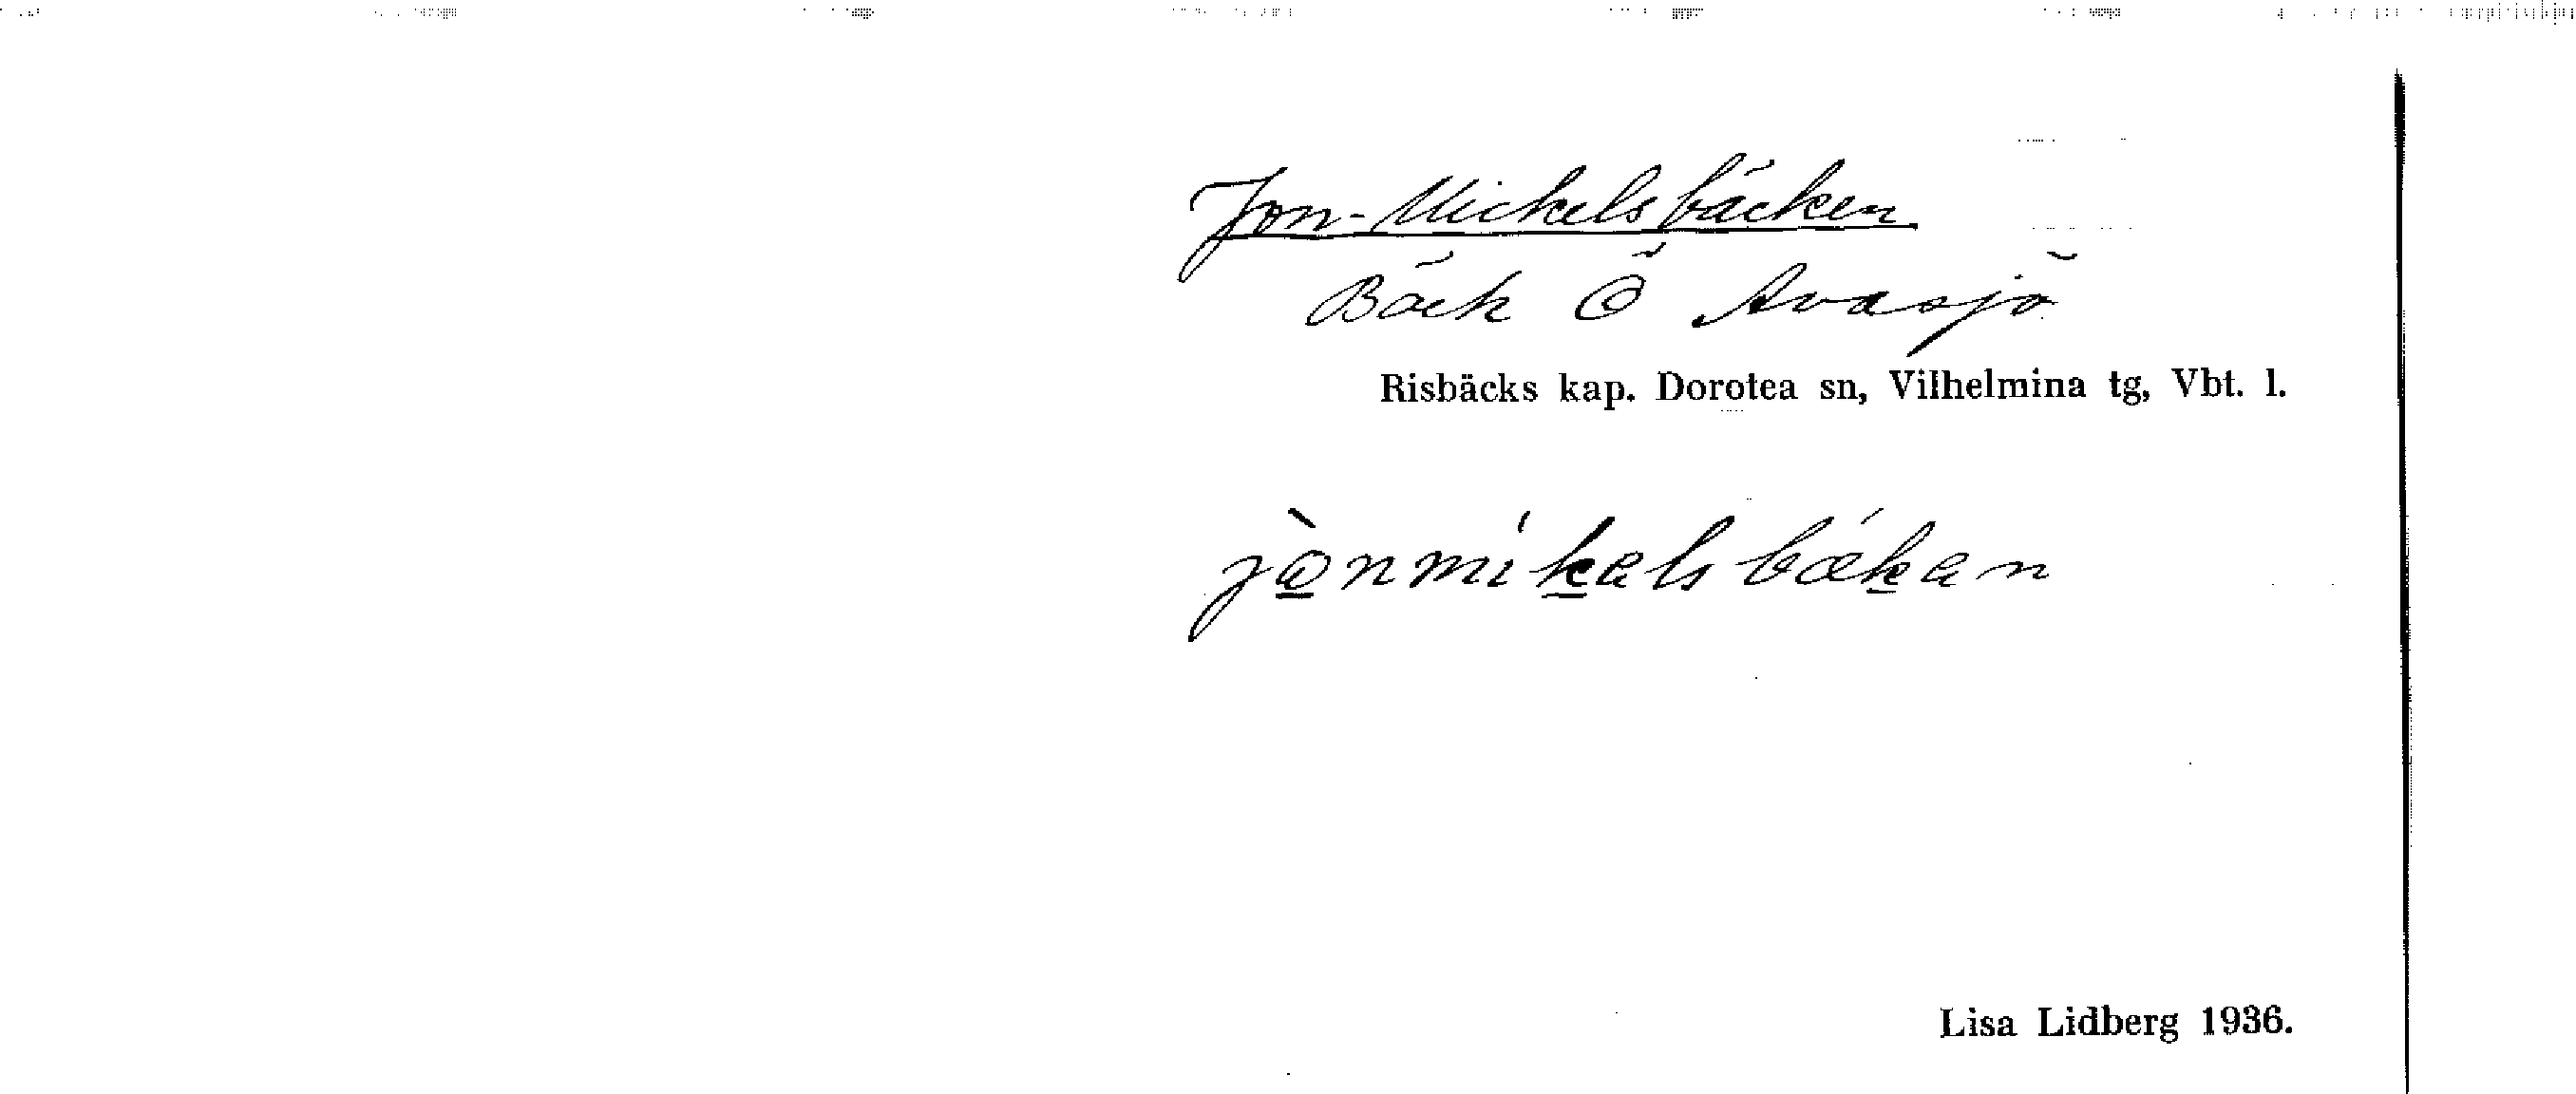 Jon-Mickelsbäcken
Bäck Ö Avasjö
Risbäcks kap. Dorotea sn, Vilhelmina tg, Vbt. l.
jò̱nmik̲alsbǽk̲an
Lisa Lidberg 1936.